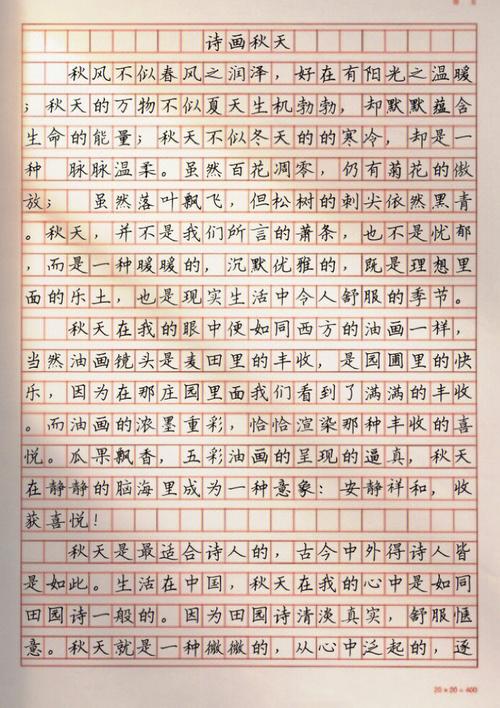 诗画秋天
秋风不似春风之润泽，好在有阳光之温暖
；秋天的万物不似夏天生机勃勃，却默默蕴含
生命的能量；秋天不似冬天的的寒冷，却是一
种 脉脉温柔。虽然百花凋零，仍有菊花的傲
放； 虽然落叶飘飞，但松树的刺尖依然黑青
。秋天，并不是我们所言的萧条，也不是忧郁
，而是一种暖暖的，沉默优雅的，既是理想里
面的乐土，也是现实生活中令人舒服的季节。
秋天在我的眼中便如同西方的油画一样，
当然油画镜头是麦田里的丰收，是园圃里的快
乐，因为在那庄园里面我们看到了满满的丰收
。而油画的浓墨重彩，恰恰渲染那种丰收的喜
悦。瓜果飘香，五彩油画的呈现的逼真，秋天
在静静的脑海里成为一种意象：安静祥和，收
获喜悦！
秋天是最适合诗人的，古今中外得诗人皆
是如此。生活在中国，秋天在我的心中是如同
田园诗一般的。因为田园诗清淡真实，舒服惬
意。秋天就是一种微微的，从心中泛起的，逐
20×20=400